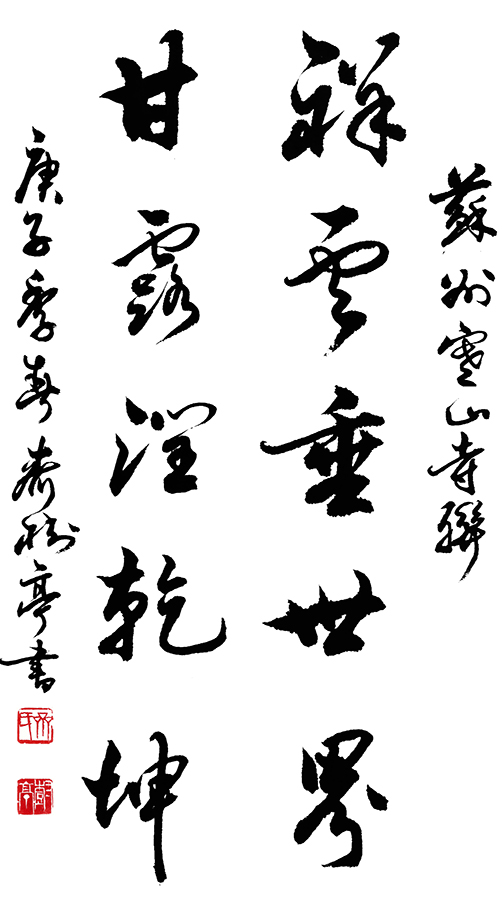 蘇州寒山寺聯
祥雲垂世界
甘露潤乾坤
庚子季春齊樹亭書